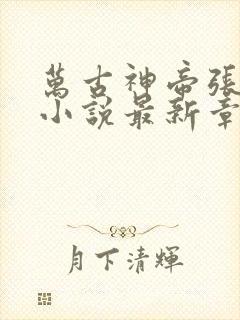 萬古神帝張
小說最新章
月下清輝